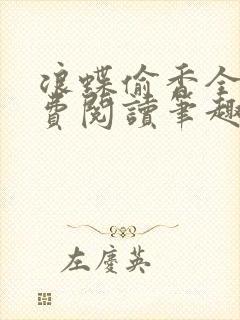 浪蝶偷香全
費閱讀筆趣
左慶英